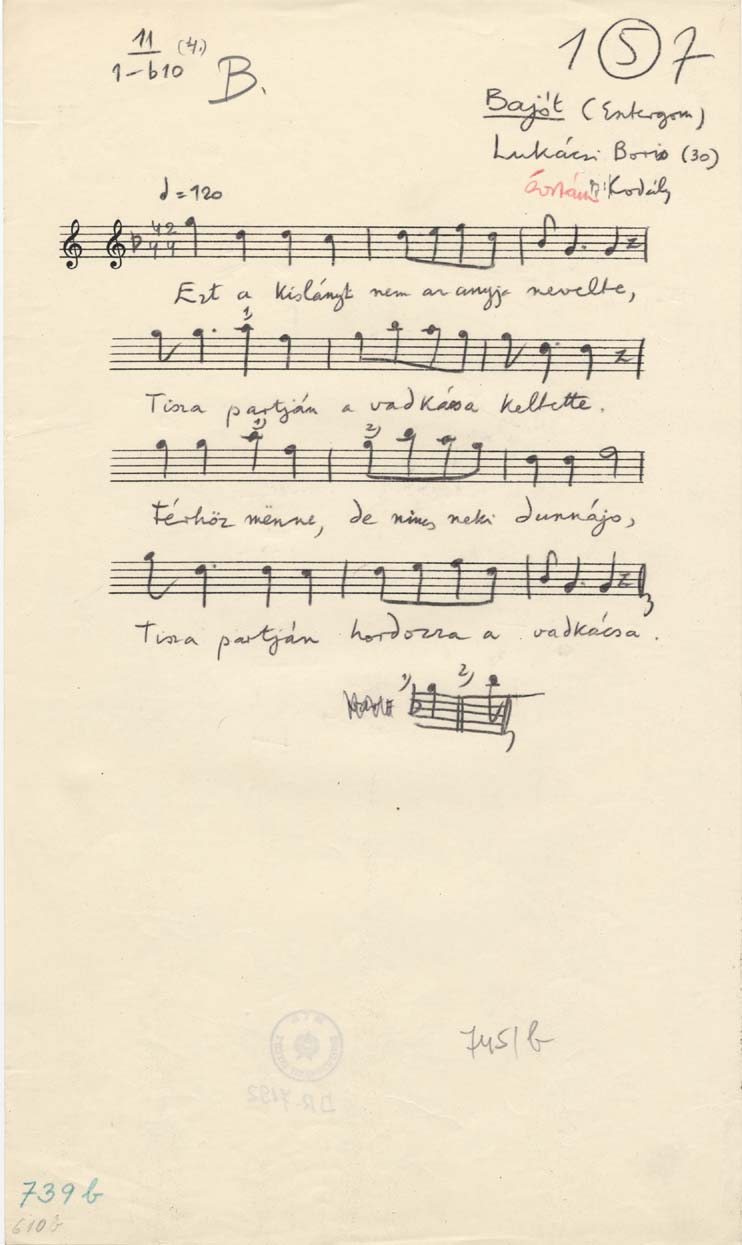 11
1-b10 (4.)
B.
1 5 7
Bajót (Esztergom)
Lukácsi Boris (30)
Kodály
= 120
4 2
4 4
Ezt a kislányt nem az anyja nevelte,
1)
Tisza partján a vadkácsa keltette.
1) 2)
Férhöz mënne, de nincs neki dunnájo,
Tisza partján hordozza a vadkácsa.
1) 2)
745/b
DR-7192
739 b
610 b